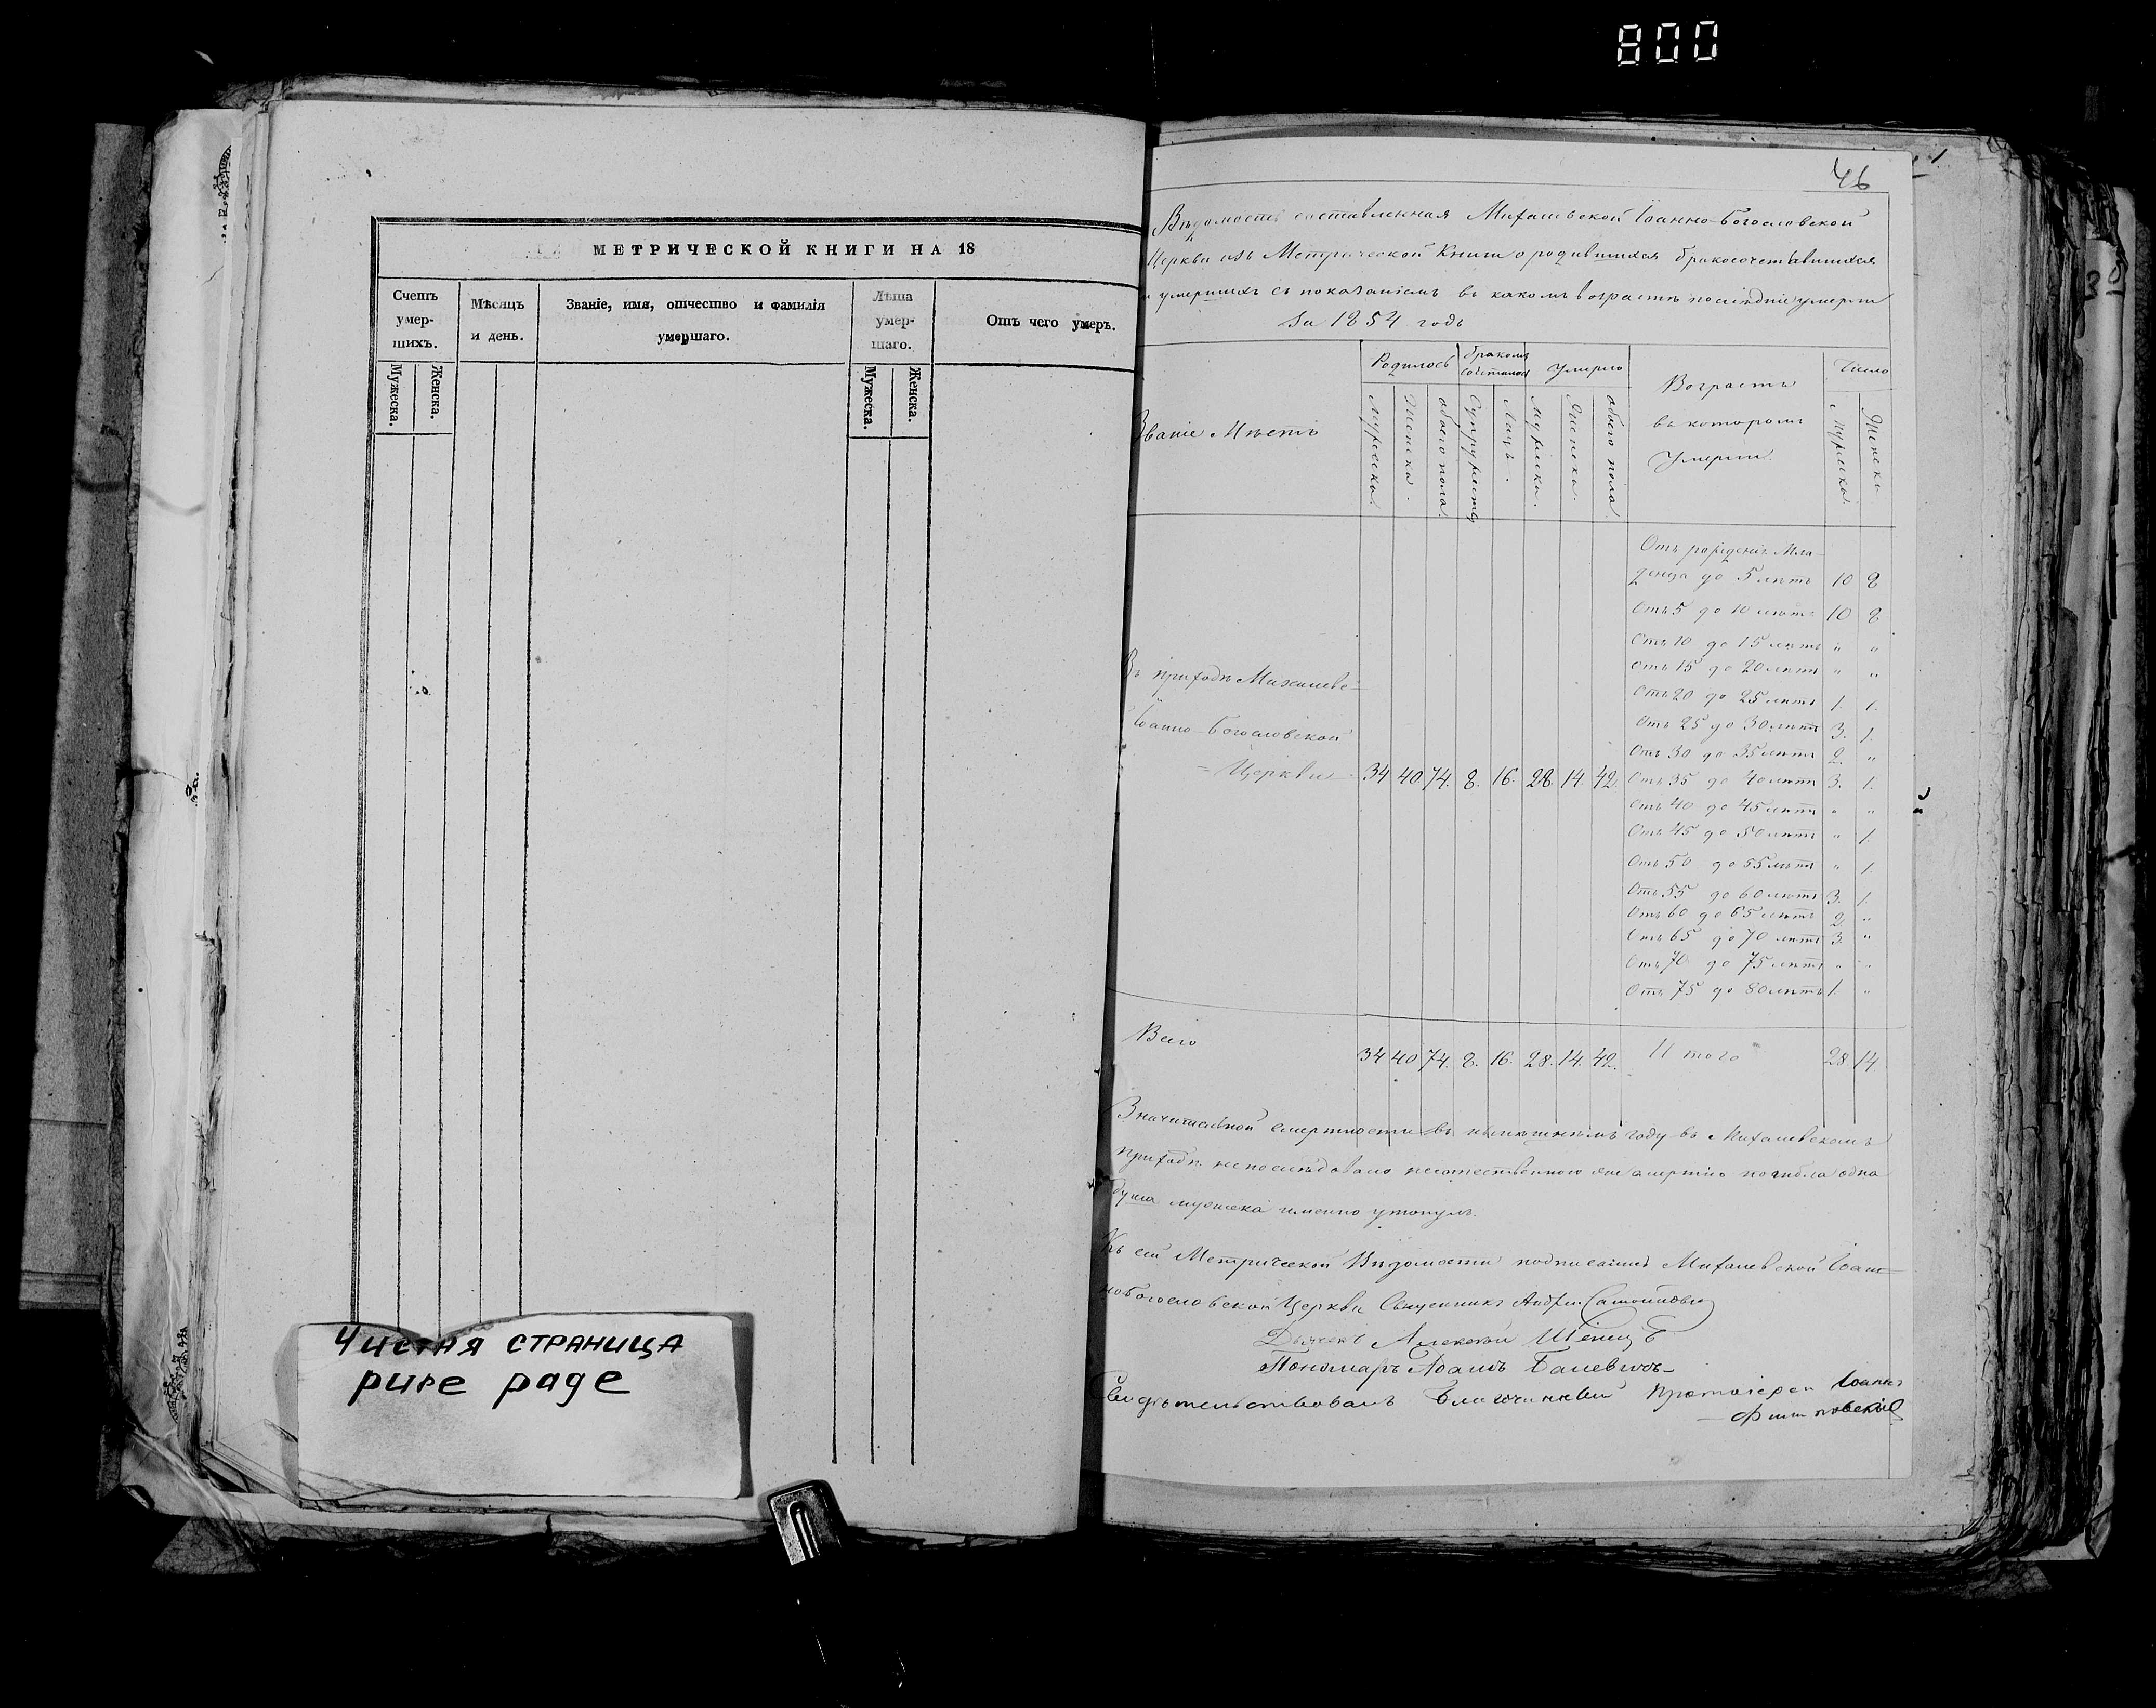 800
МЕТРИЧЕСКОЙ КНИГИ НА 18
Счетъ умер-шихъ.
Мужеска.
Женска.
Мѣсяцъ и день.
Званіе, имя, отчество и фамилія умершаго.
Лѣта умер-шаго.
Мужеска.
Женска.
Отъ чего умеръ.
Чистая страница
pure page
46
Вѣдомость составленная Михалевской Іоанно-Богословской
Церкви изъ Метрической Книги о родившихся бракосочетавшихся
и умершихъ съ показаніемъ въ какомъ возрастѣ послѣдніе умерли
За 1854 годъ
Званіе Мѣстъ
Родилось
Мужеска.
Женска.
обоего пола.
Бракомъ
Супружествъ
Лицъ.
Умерло
Мужеска.
Женска.
обоего пола.
Возрастъ
въ которомъ
Умерли.
Число
Мужеска.
Женска
Отъ рожденія Мла-
денца до 5 лѣтъ 10 8
Отъ 5 до 10 лѣтъ 10 8
Отъ 10 до 15 лѣтъ " "
Отъ 15 до 20 лѣтъ " "
Отъ 20 до 25 лѣтъ 1. 1.
Отъ 25 до 30 лѣтъ 3. 1.
Отъ 30 до 35 лѣтъ 2. "
Въ приходѣ Михалевс-
Іоанно-Богословской
Церкви 34 40. 74. 8. 16. 28. 14. 42. Отъ 35 до 40 лѣтъ 3. 1.
Отъ 40 до 45 лѣтъ " "
Отъ 45 до 50 лѣтъ " 1.
Отъ 50 до 55 лѣтъ " 1.
Отъ 55 до 60 лѣтъ 3. 1.
Отъ 60 до 65 лѣтъ 2. "
Отъ 65 до 70 лѣтъ 3. "
Отъ 70 до 75 лѣтъ " "
Отъ 75 до 80 лѣтъ 1. "
Всего 34 40 74. 8. 16. 28. 14. 42. Итого 28 14.
Значительной смертности въ нынѣшнемъ году въ Михалевскомъ
приходѣ непослѣдовало неестественною смертію погибла одна
душа мужеска именно утонулъ.
Къ сей Метрической Вѣдомости подписались Михалевской Іоан-
нобогословской Церкви Священникъ Андрей
Дьячекъ Алексѣй
Пономарь Іоаннъ Балевичъ
Свидѣтельствовалъ Благочинный Протоіерей Іоаннъ